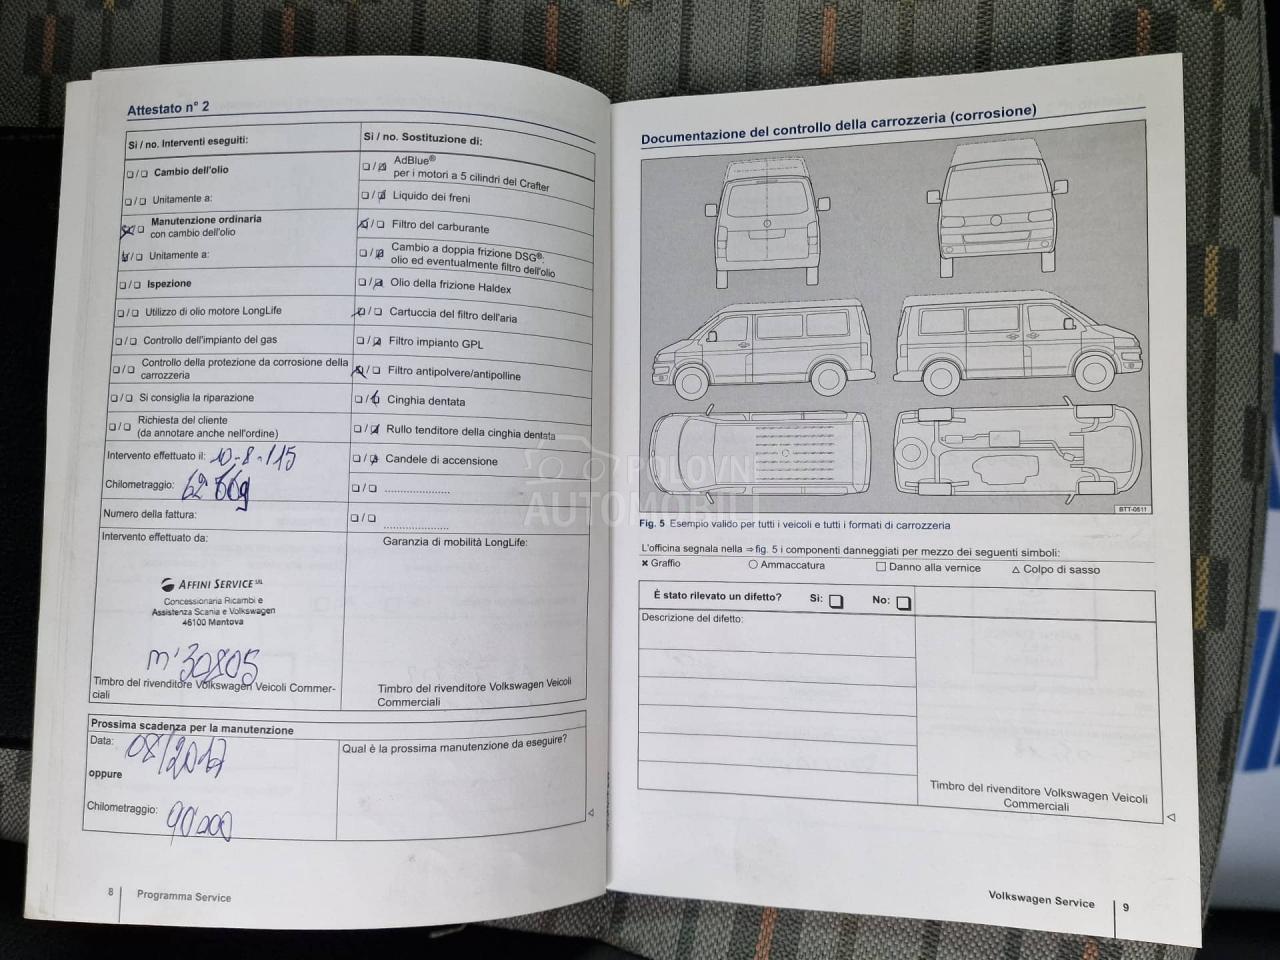 Attestato n° 2
Si / no. Interventi eseguiti:
❑ / ❑ Cambio dell'olio
❑ / ❑ Unitamente a:
❑ / ❑ Manutenzione ordinaria
con cambio dell'olio
❑ / ❑ Unitamente a:
❑ / ❑ Ispezione
❑ / ❑ Utilizzo di olio motore LongLife
❑ / ❑ Controllo dell'impianto del gas
❑ / ❑ Controllo della protezione da corrosione della
carrozzeria
❑ / ❑ Si consiglia la riparazione
❑ / ❑ Richiesta del cliente
(da annotare anche nell'ordine)
Intervento effettuato il: 10-8-/15
Chilometraggio:
Numero della fattura:
Intervento effettuato da:
AFFINI SERVICE SRL
Concessionaria Ricambi e
Assistenza Scania e Volkswagen
46100 Mantova
30805
Timbro del rivenditore Volkswagen Veicoli Commer-
ciali
Si / no. Sostituzione di:
❑ / ❑ AdBlue®
per i motori a 5 cilindri del Crafter
❑ / ❑ Liquido dei freni
❑ / ❑ Filtro del carburante
❑ / ❑ Cambio a doppia frizione DSG®:
olio ed eventualmente filtro dell'olio
❑ / ❑ Olio della frizione Haldex
❑ / ❑ Cartuccia del filtro dell'aria
❑ / ❑ Filtro impianto GPL
❑ / ❑ Filtro antipolvere/antipolline
❑ / ❑ Cinghia dentata
❑ / ❑ Rullo tenditore della cinghia dentata
❑ / ❑ Candele di accensione
❑ / ❑ .....................
❑ / ❑ .....................
Garanzia di mobilità LongLife:
Timbro del rivenditore Volkswagen Veicoli
Commerciali
Prossima scadenza per la manutenzione
Data: 08/2017
oppure
Chilometraggio: 90'000
Qual è la prossima manutenzione da eseguire?
8 Programma Service
Documentazione del controllo della carrozzeria (corrosione)
BTT-0511
Fig. 5 Esempio valido per tutti i veicoli e tutti i formati di carrozzeria
L'officina segnala nella ⇒ fig. 5 i componenti danneggiati per mezzo dei seguenti simboli:
× Graffio ○ Ammaccatura □ Danno alla vernice △ Colpo di sasso
È stato rilevato un difetto? Si: ❑ No: ❑
Descrizione del difetto:
Timbro del rivenditore Volkswagen Veicoli
Commerciali
Volkswagen Service 9
POLOVNI
AUTOMOBILI